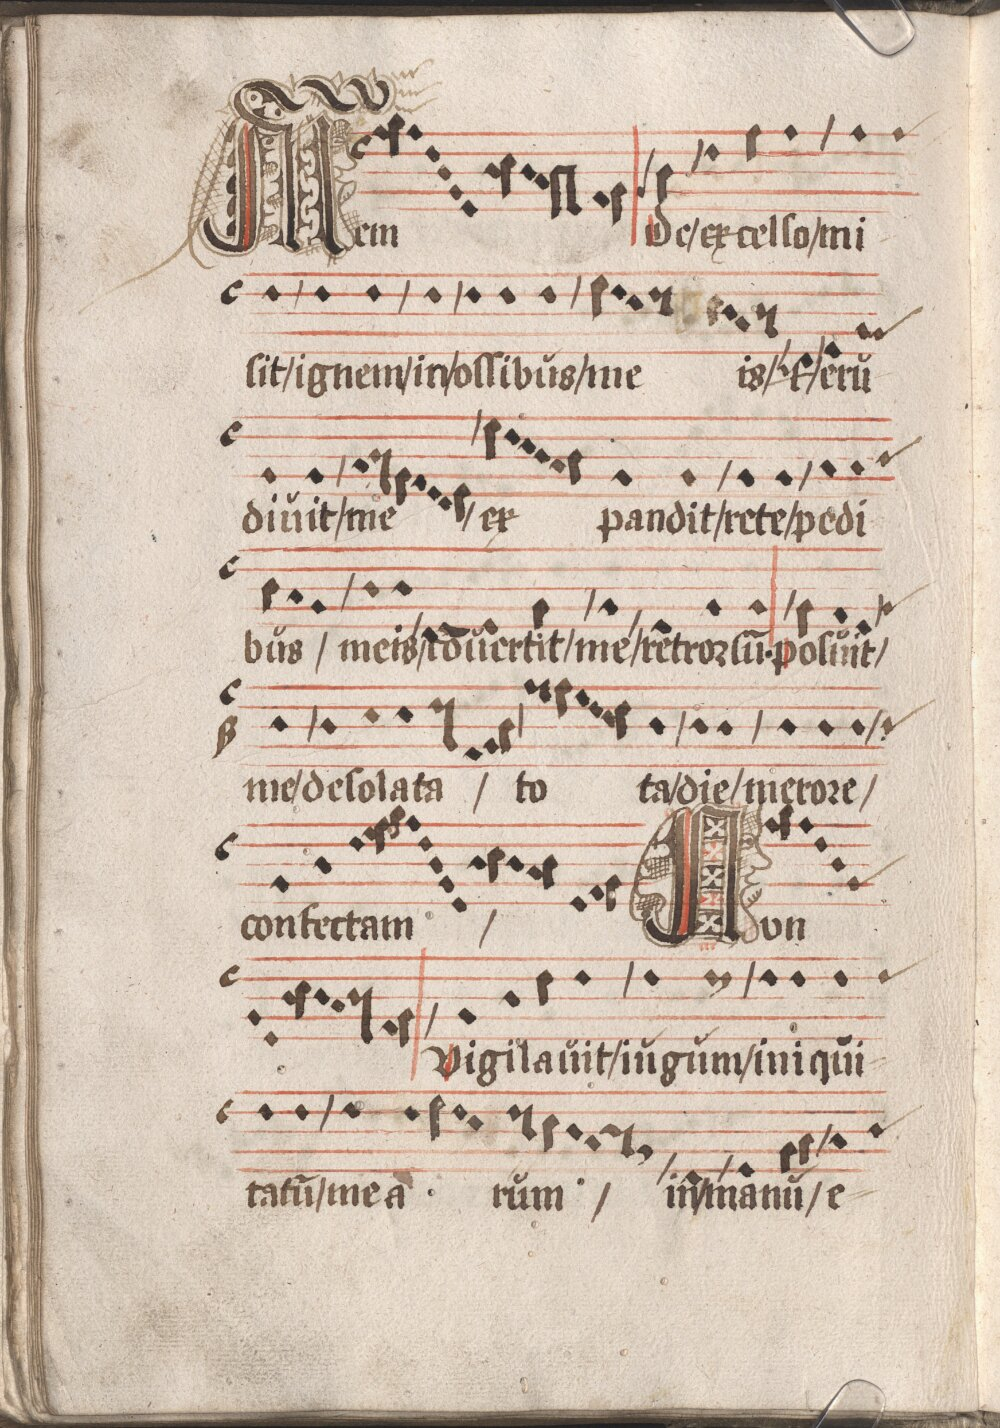 Mem De/excelso/mi
sit/ignem/in/ossibus/me is/et/erū
diuit/me / ex pandit/rete/pedi
bus / meis/ɔuertit/me/retrorsū. posuit/
me/desolata / to ta/die/merore/
confectam / Nun
Vigilauit/iugum/iniqui
tatū/meā . rum / in/manu/e